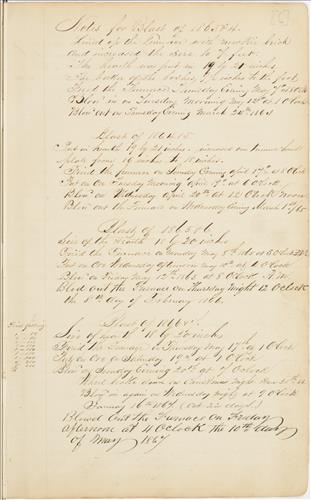 Notes for Blast of 1863 & 4
Lined up the Furnace with new fire brick
and increased the bore to 9 feet.
The hearth was put in 19 by 21 inches
the boshes inches to the foot
Fired the Furnace Evening May
Blew in on Tuesday Morning May 12th at 1 Oclock
Blew out on Tuesday Evening March 1864
Blast of 1864 & 5
Put in hearth 19 by 21 inches
plate from 19 inches to 18 inches.
Fired the furnace on Sunday Evening April 17th at 8 Oclock
Put on Ore Tuesday Morning April 19th at 6 Oclock
Blew in Wednesday April 20th at 12 Oclock Noon
Blew out the Furnace on Wednesday Evening March 1st /65
Blast of 1865 & 6
Size of the Hearth 18 by 20 inches
Fired the Furnace on Monday May 8th 1865 at 5 Oclock P.M.
Put on Ore Wednesday at Oclock
Blew in Friday May 12th 1865 at 8 Oclock A.M.
Blew out the Furnace on Thursday Night 12 Oclock
the 8th day of February 1866.
Blast of 1866 & 7
Size of new Hearth 18 by 20 inches
Fired the Furnace Thursday May 17th at 1 Oclock
Put on Ore on Saturday 19th at 1 Oclock
Blew in Sunday Evening 20th at 7 Oclock
Wheel broke down on Christmas Night Dec 25th 66
Blew on again on Wednesday night at 9 Oclock
January 16th 1867 (Out 22 days)
Blowed Out the Furnace On Friday
afternoon at 4 Oclock the 10th day
of May 1867